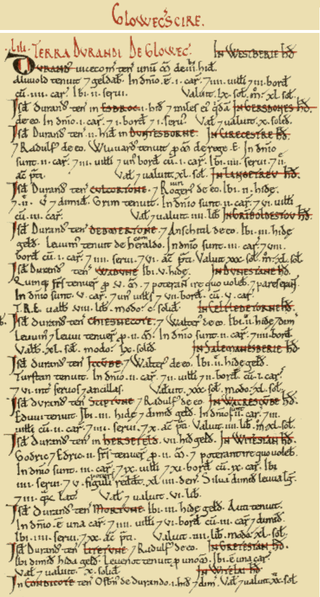 GLOWECSCIRE.
LIII. TERRA DURANDI DE GLOWEC. IN WESTBERIE HD.
DURAND vicecom ten unu de III. hid.
Aluuold tenuit 7 geldab. In dnio. e. I. car. 7 IIII. uilli 7 III. bord
cu. IIII. car. Ibi. II. serui. Valuit. LX. sol. m. XL. sol.
Isd durand ten in ESBROC. I. hid 7 IN GERSDONES HD.
de eo. In dnio. I. car. 7 I. bord 7 I. seru. Val 7 ualuit. XX. solid.
Isd Durand ten. II. hid in DUNTESBORNE. IN CIRECESTRE HD.
7 Radulf de eo. Wluuard tenuit de rege. E. In dnio
sunt. II. car. 7 IIII. uilli 7 un bord cu. I. car. Ibi. IIII. serui. 7 II.
ac pti. Val 7 ualuit. XL. sol. IN LANGETREV HD.
Isd Durand ten CULCORTONE. 7 Roger de eo. Ibi. II. hide.
7. II. 7 dimid. Grim tenuit. In dnio sunt. II. car. 7 II. uilli
cu. III. car. Val 7 ualuit. IIII. lib. IN GRIBOLDESTOV HD.
Isd Durand ten DEDMERTONE. 7 Anschitil de eo. Ibi. III. hide
geld. Leuuin tenuit de heraldo. In dnio sunt. II. car. 7 VIII.
bord cu. I. car. 7 VI. serui. 7 VI. ac pti. Valuit. XXX. sol. m. XL. sol.
Isd durand ten WADUNE. Ibi. V. hide. IN DUNESTANE HD.
Quinq; frs tenuer p. V. 7 poterant ire quo voleb. 7 pares erant.
In dnio sunt. V. car. 7 un uills 7 VII. bord. cu. V. car.
T.R.E. ualb. VIII. lib. modo. C. solid.
Isd durand ten CHIESNECOTE. 7 Walter de eo. Ibi. II. hide 7 dim.
Leuuin 7 Leuui tenuer p. II. In dnio. I. car. 7 IIII. bord
Valb. XL. sol. modo. LX. solid. IN SALEMANESBERIE HD.
Isd Durand ten ICCUBE. 7 Walter de eo. Ibi. II. hide geld.
Turstan tenuit. In dnio. II. car. 7 IIII. uilli 7 II. bord. cu. II. car.
7 VI. int seruos 7 ancillas. Valuit. XXX. sol. modo. XL. sol.
Isd Durand ten SCIPTUNE. 7 Radulf de eo. IN WACRESCUBE HD.
Eduui tenuit. Ibi. III. hide 7 dimid geld. In dnio sunt. II. car. 7 III.
uilli cu. II. car. 7. III. serui. 7. X. ac pti. Valuit. IIII. lib. m. XL. sol.
Isd durand ten in HERSEFELD. VII. hid geld. IN WITESTAN HD.
Godric 7 Edric. II. frs tenuer p. II. 7 poterant ire quo voleb.
In dnio sunt. III. car. 7 IX. uilli 7 XI. bord cu. IX. car. Ibi.
IIII. serui. 7 V. figuli reddt. XL. IIII. den. Silua dimid leuua lg.
7 III. qz lat. Val 7 ualuit. VI. lib.
Isd Durand ten MORTUNE. Ibi. III. hide geld. Auti tenuit.
In dnio. e una car. 7 IIII. uilli 7 II. bord. cu. II. car 7 dimid.
Ibi. IIII. serui. 7. XX. ac pti. Valuit. IIII. lib. modo. XL. sol.
Isd Durand ten LITETUNE. 7 Radulf de eo. IN GRETESTAN HD.
Ibi dimid hida geld. Leuenot tenuit p uno. Ibi. e una car
Val 7 ualuit. X. solid. IN WITELAI HD.
In CONDICOTE ten Osbn de Durando. I. hid 7 dim. Val 7 ualuit. XX. sol.